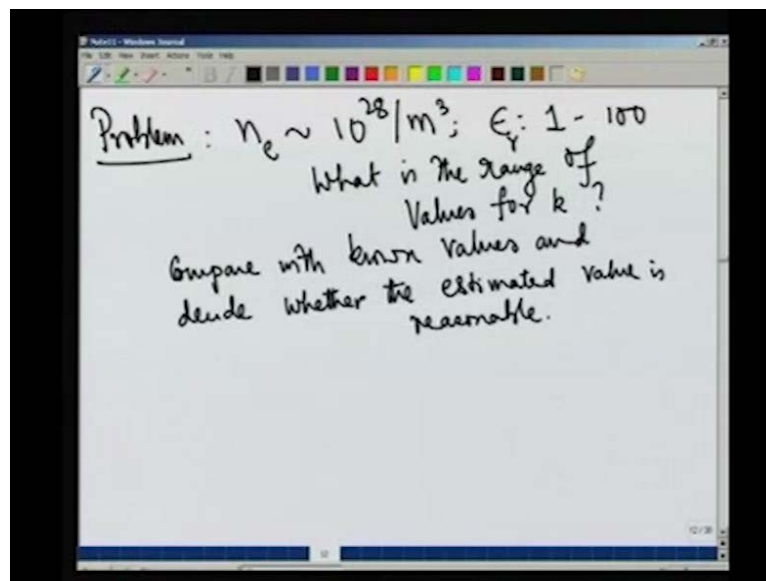 Note11 - Windows Journal
File Edit View Insert Actions Tools Help
Problem : n_e ~ 10^28/m^3; ϵ_r: 1 - 100
What is the range of
values for k ?
Compare with known values and
decide whether the estimated value is
reasonable.
12/30
12